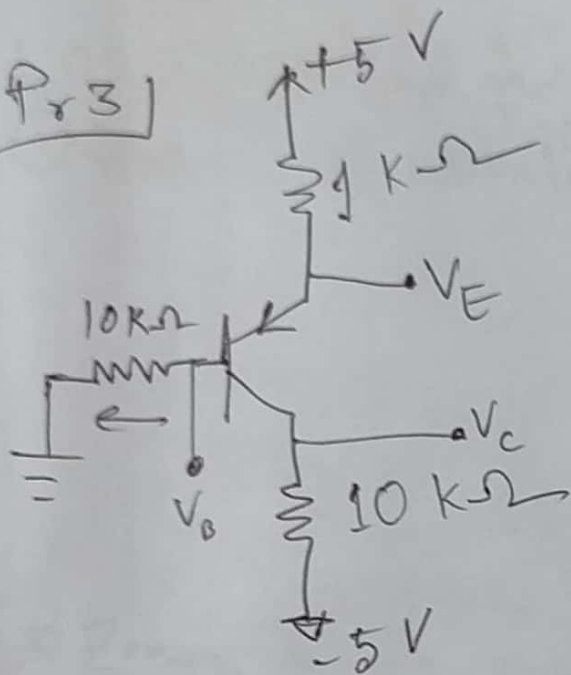 Pr 3
+5 V
1 KΩ
VE
10KΩ
VB
VC
10 KΩ
-5 V